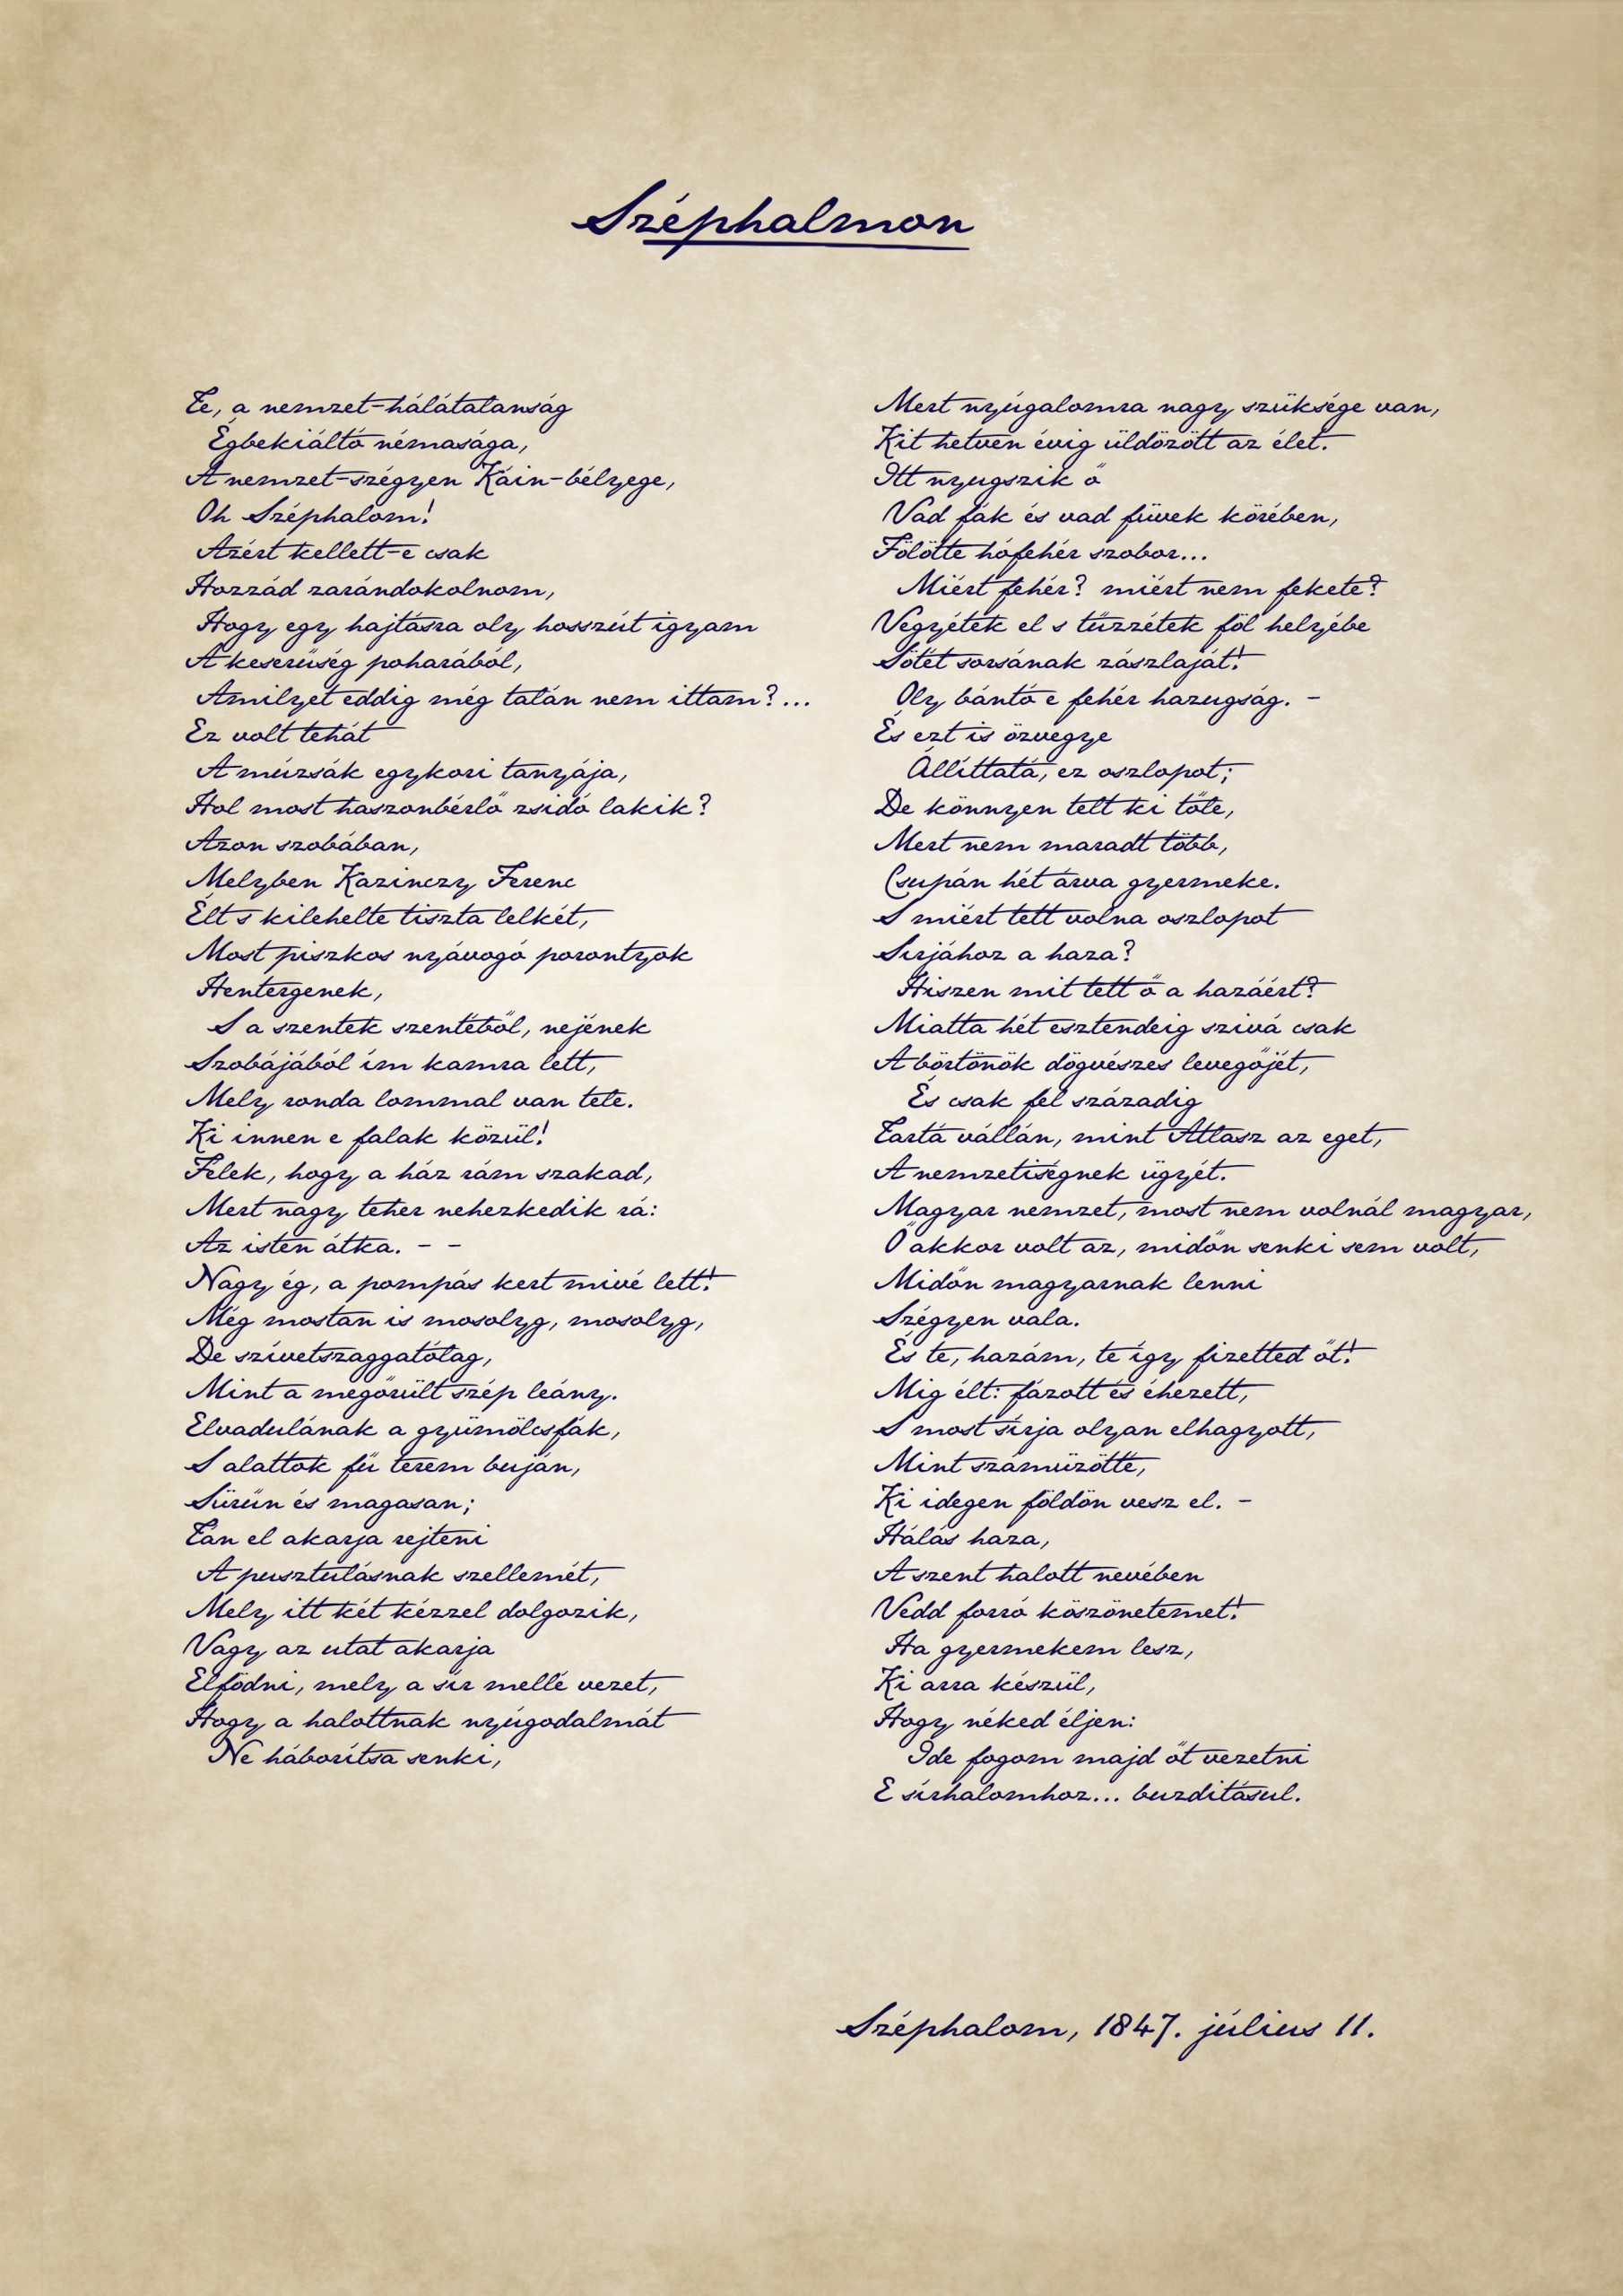 Széphalmon
Te, a nemzet-hálátalanság
Égbekiáltó némasága,
A nemzet-szégyen Káin-bélyege,
Oh Széphalom!
Azért kellett-e csak
Hozzád zarándokolnom,
Hogy egy hajtásra oly hosszút igyam
A keserüség poharából,
Amilyet eddig még talán nem ittam?...
Ez volt tehát
A múzsák egykori tanyája,
Hol most haszonbérlő zsidó lakik?
Azon szobában,
Melyben Kazinczy Ferenc
Élt s kilehelte tiszta lelkét,
Most piszkos nyávogó porontyok
Hentergenek,
S a szentek szentéből, nejének
Szobájából ím kamra lett,
Mely ronda lommal van tele.
Ki innen e falak közül!
Félek, hogy a ház rám szakad,
Mert nagy teher nehezkedik rá:
Az isten átka. - -
Nagy ég, a pompás kert mivé lett!
Még mostan is mosolyg, mosolyg,
De szívetszaggatólag,
Mint a megőrült szép leány.
Elvadulának a gyümölcsfák,
S alattok fű terem buján,
Sürün és magasan;
Tán el akarja rejteni
A pusztulásnak szellemét,
Mely itt két kézzel dolgozik,
Vagy az utat akarja
Elfödni, mely a sír mellé vezet,
Hogy a halottnak nyúgodalmát
Ne háborítsa senki,
Mert nyúgalomra nagy szüksége van,
Kit hetven évig üldözött az élet.
Itt nyugszik ő
Vad fák és vad füvek körében,
Fölötte hófehér szobor...
Miért fehér? miért nem fekete?
Vegyétek el s tűzzétek föl helyébe
Sötét sorsának zászlaját!
Oly bántó e fehér hazugság. -
És ezt is özvegye
Állíttatá, ez oszlopot;
De könnyen telt ki tőle,
Mert nem maradt több,
Csupán hét árva gyermeke.
S miért tett volna oszlopot
Sirjához a haza?
Hiszen mit tett ő a hazáért?
Miatta hét esztendeig szivá csak
A börtönök dögvészes levegőjét,
És csak fél századig
Tartá vállán, mint Atlasz az eget,
A nemzetiségnek ügyét.
Magyar nemzet, most nem volnál magyar,
Ő akkor volt az, midőn senki sem volt,
Midőn magyarnak lenni
Szégyen vala.
És te, hazám, te így fizetted őt!
Mig élt: fázott és éhezett,
S most sírja olyan elhagyott,
Mint száműzötté,
Ki idegen földön vesz el. -
Hálás haza,
A szent halott nevében
Vedd forró köszönetemet!
Ha gyermekem lesz,
Ki arra készül,
Hogy néked éljen:
Ide fogom majd őt vezetni
E sírhalomhoz... buzdításul.
Széphalom, 1847. július 11.